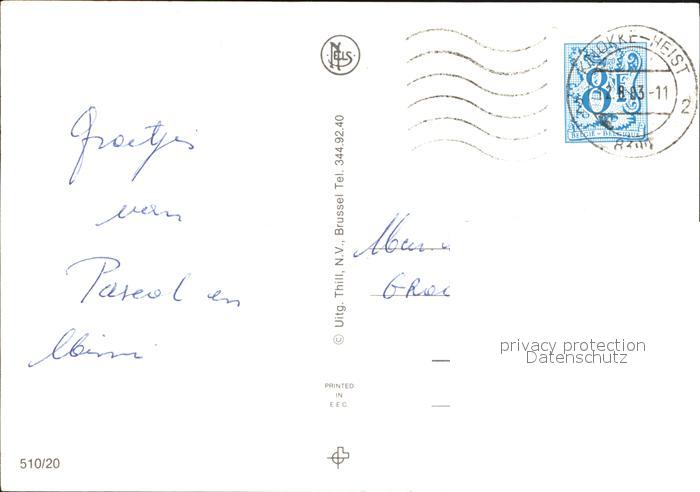 Groetjes
van
Pascal en
Mimi
NELS
© Uitg. Thill, N.V., Brussel Tel. 344.92.40
PRINTED
IN
E.E.C.
510/20
KNOKKE-HEIST
2
-11
8F
BELGIE-BELGIQUE
privacy protection
Datenschutz